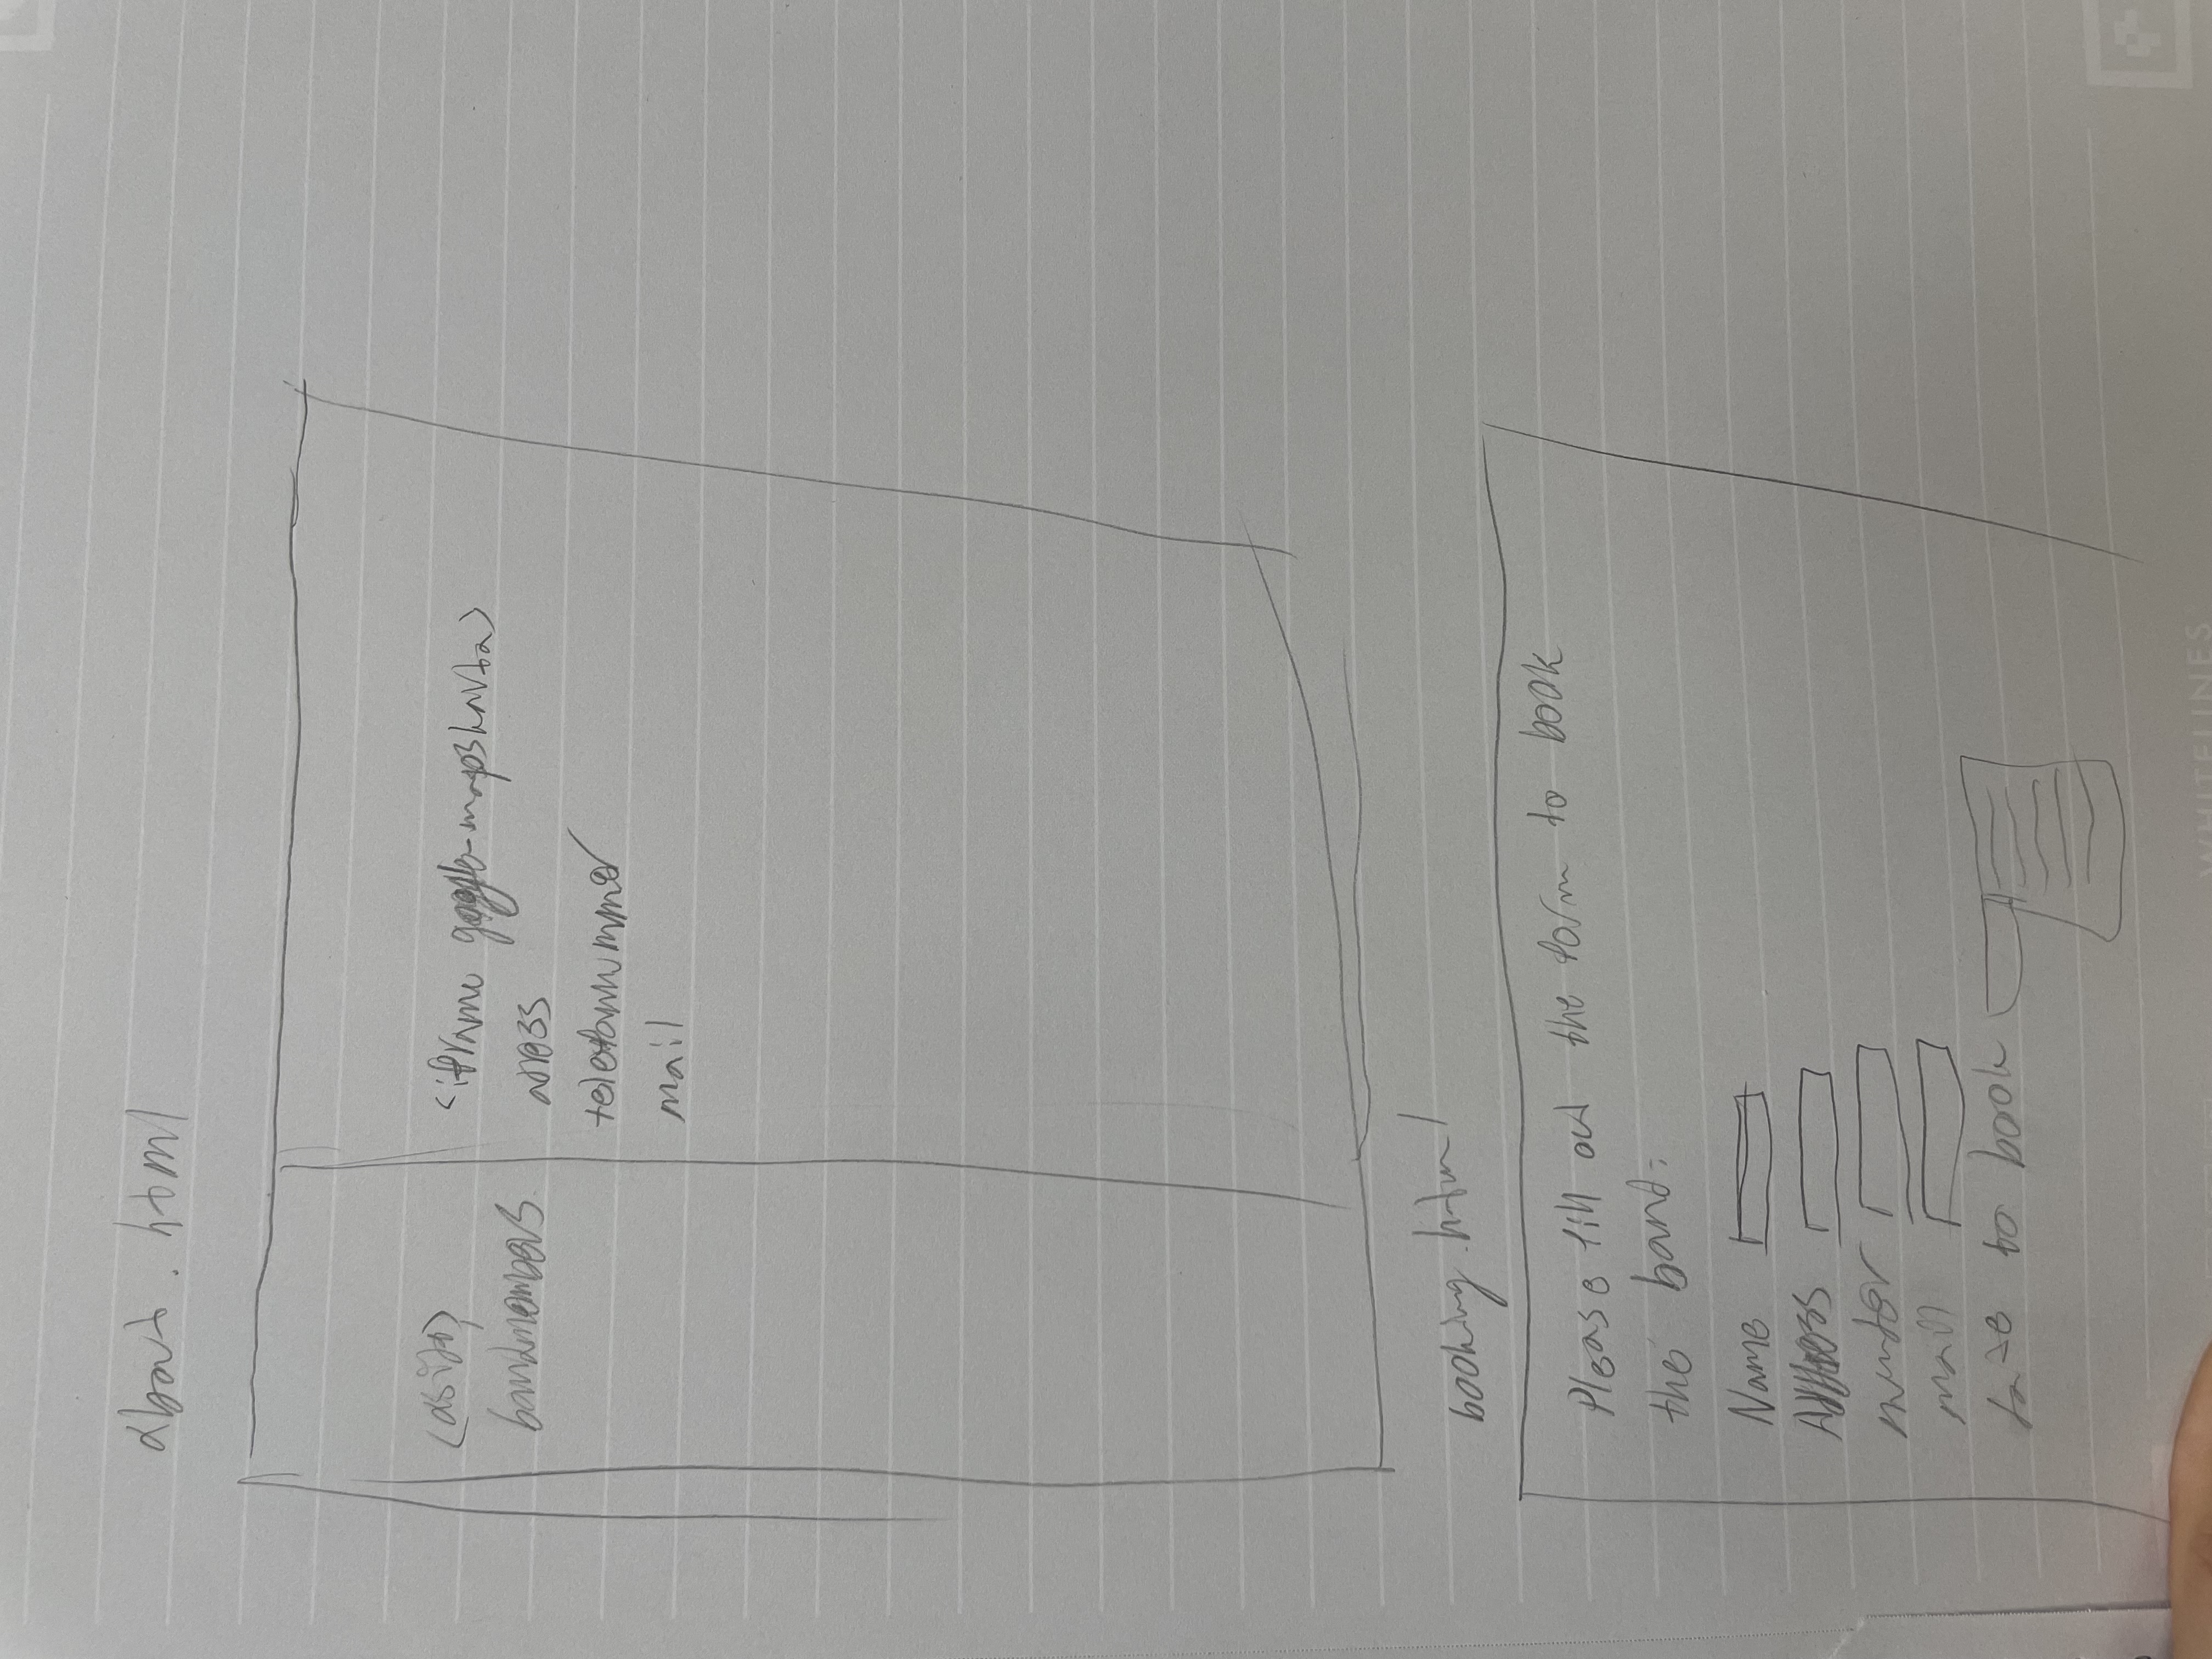 about.html
<aside>
bandmembers
<iframe google-mapskarta>
adress
telefonnummer
mail
booking.html
Please fill out the form to book
the band:
Name
Address
number
mail
date to book
WHITELINES